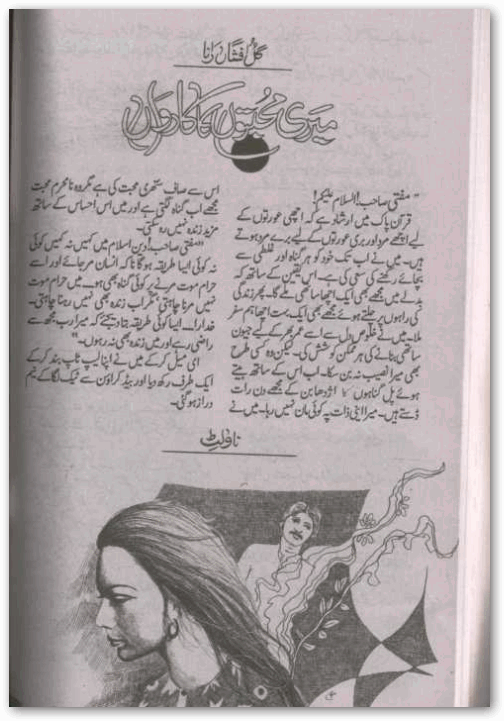 گل فشاں رانا
میری محبتوں کا کارواں
"مفتی صاحب! السلام علیکم!
قرآن پاک میں ارشاد ہے کہ اچھی عورتوں کے
لیے اچھے مرد اور بری عورتوں کے لیے برے مرد ہوتے
ہیں۔ میں نے اب تک خود کو ہر گناہ اور غلطی سے
بچائے رکھنے کی سعی کی ہے۔ اس یقین کے ساتھ کہ
بدلے میں مجھے بھی ایک اچھا ساتھی ملے گا۔ پھر زندگی
کی راہوں پر چلتے ہوئے مجھے بھی ایک بہت اچھا ہم سفر
ملا۔ میں نے خلوص دل سے اسے عمر بھر کے لیے جیون
ساتھی بنانے کی ہر ممکن کوشش کی۔ لیکن وہ کسی طرح
بھی میرا نصیب نہ بن سکا۔ اب اس کے ساتھ بیتے
ہوئے پل گناہوں کا اژدھا بن کے مجھے دن رات
ڈستے ہیں۔ میرا اپنی ذات پہ کوئی مان نہیں رہا۔ میں نے
اس سے صاف ستھری محبت کی ہے مگر وہ نامحرم محبت
مجھے اب گناہ لگتی ہے اور میں اس احساس کے ساتھ
مزید زندہ نہیں رہ سکتی۔
"مفتی صاحب! دین اسلام میں کہیں نہ کہیں کوئی
نہ کوئی ایسا طریقہ ہو گا نا کہ انسان مر جائے اور اسے
حرام موت مرنے پر کوئی گناہ بھی ہو۔ میں حرام موت
مرنا نہیں چاہتی مگر اب زندہ بھی نہیں رہنا چاہتی۔
خدارا۔ ایسا کوئی طریقہ بتا دیجئے کہ میرا رب مجھ سے
راضی رہے اور میں زندہ بھی نہ رہوں۔"
ای میل کر کے میں نے اپنا لیپ ٹاپ بند کر کے
ایک طرف رکھ دیا اور بیڈ کراؤن سے ٹیک لگا کے نیم
دراز ہو گئی۔
ناولٹ